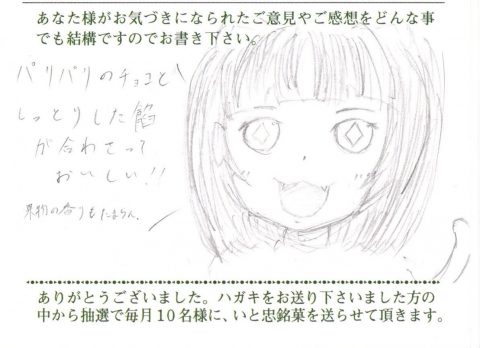 あなた様がお気づきになられたご意見やご感想をどんな事
でも結構ですのでお書き下さい。
パリパリのチョコと
しっとりした餡
が合わさって
おいしい!!
果物の香りもたまらん。
ありがとうございました。ハガキをお送り下さいました方の
中から抽選で毎月10名様に、いと忠銘菓を送らせて頂きます。